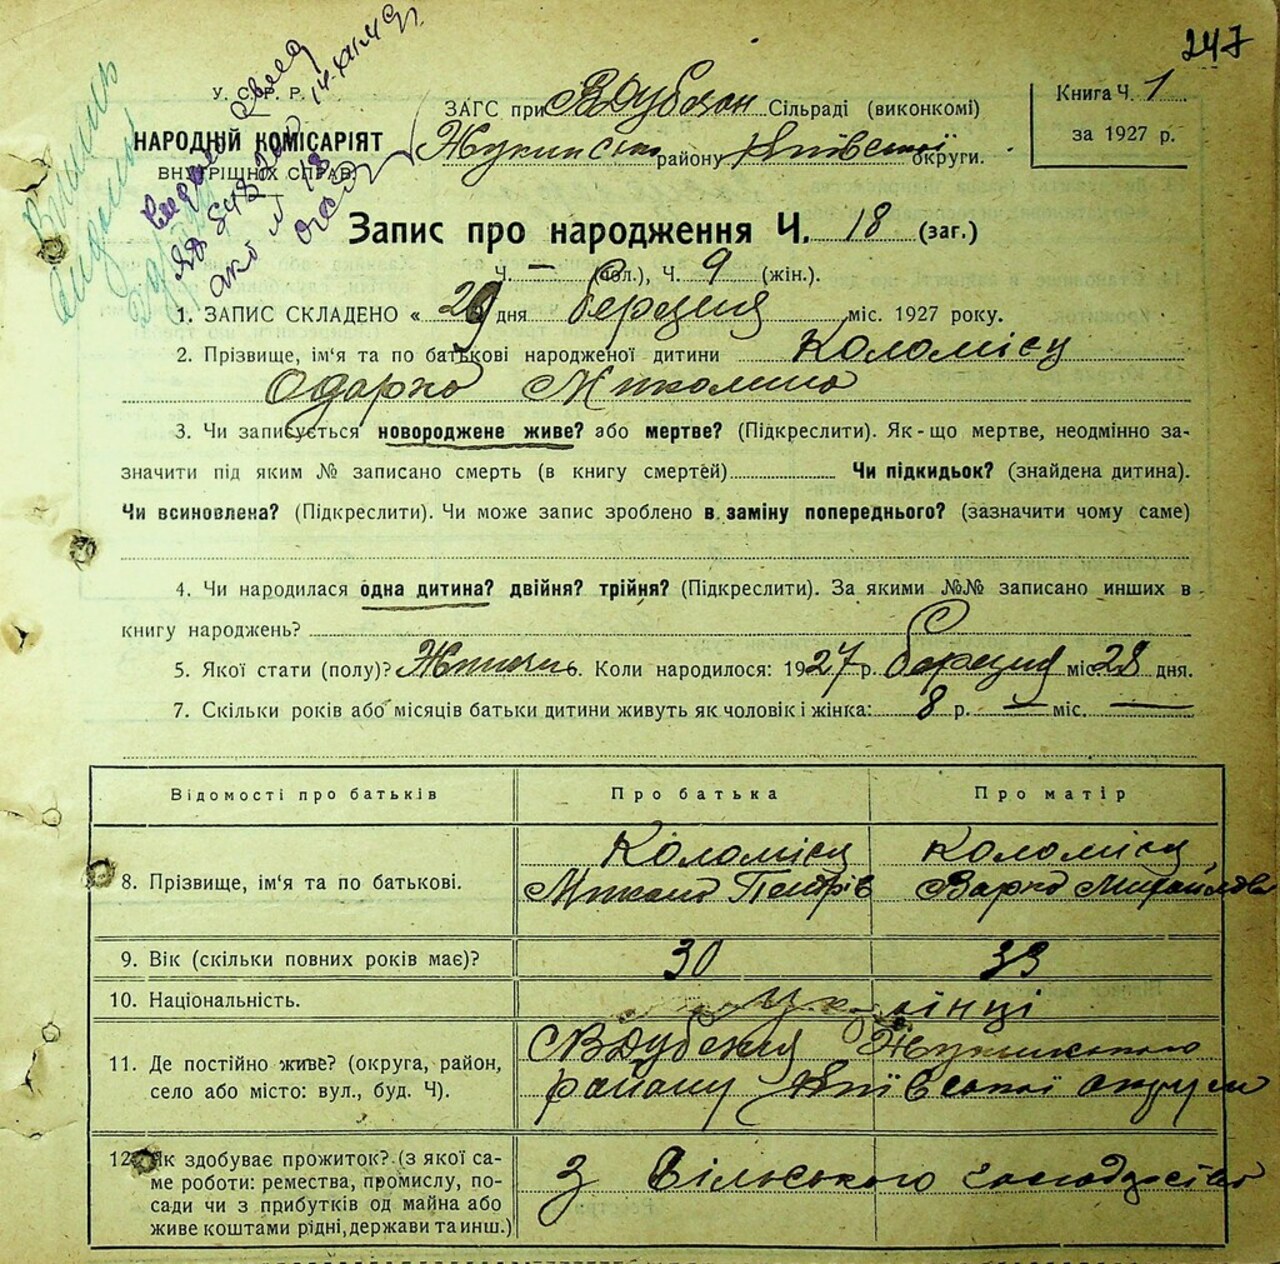 247
У. С. Р. Р.
НАРОДНІЙ КОМІСАРІЯТ
ВНУТРІШНІХ СПРАВ
ЗАГС при ВДубечан Сільраді (виконкомі)
Жукинсько району Київської округи.
Книга Ч. 1
за 1927 р.
Запис про народження Ч. 18 (заг.)
Ч. — (чол.), Ч. 9 (жін.).
1. ЗАПИС СКЛАДЕНО « 29 дня березня міс. 1927 року.
2. Прізвище, ім'я та по батькові народженої дитини Коломієц
Одарка Миколина
3. Чи записується новороджене живе? або мертве? (Підкреслити). Як-що мертве, неодмінно за-
значити під яким № записано смерть (в книгу смертей) Чи підкидьок? (знайдена дитина).
Чи всиновлена? (Підкреслити). Чи може запис зроблено в заміну попереднього? (зазначити чому саме)
4. Чи народилася одна дитина? двійня? трійня? (Підкреслити). За якими №№ записано инших в
книгу народжень?
5. Якої стати (полу)? Коли народилося: 1927 р. березня міс. 28 дня.
7. Скільки років або місяців батьки дитини живуть як чоловік і жінка: 8 р. — міс. —
Відомості про батьків Про батька Про матір
Коломієц Коломієц
8. Прізвище, ім'я та по батькові. Микола Петрів Варка Михайлова
9. Вік (скільки повних років має)? 30 33
10. Національність. Українці
11. Де постійно живе? (округа, район, ВДубечня Жукинського
село або місто: вул., буд. Ч). району Київської округи
12. Як здобуває прожиток? (з якої са-
ме роботи: ремества, промислу, по- З сільського господарства
сади чи з прибутків од майна або
живе коштами рідні, держави та инш.)